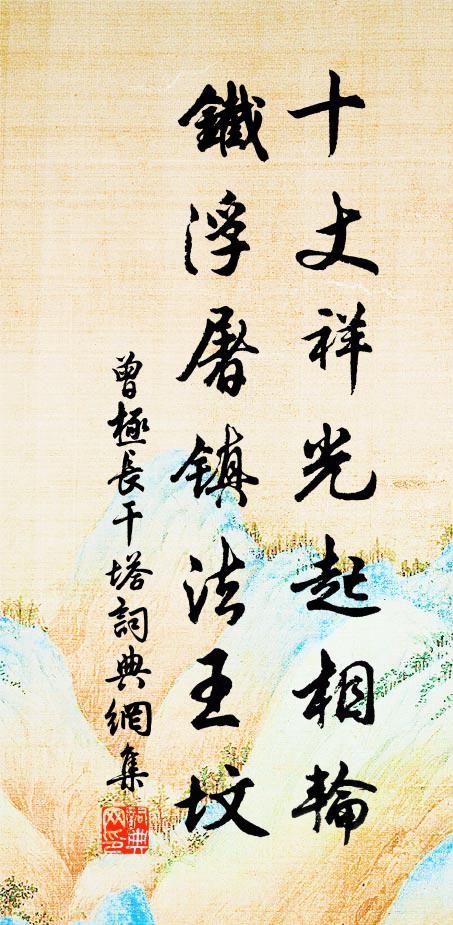 十丈祥光起相輪
鐵浮屠鎮法王坟
曾極長干塔詞典網集
詞典網印